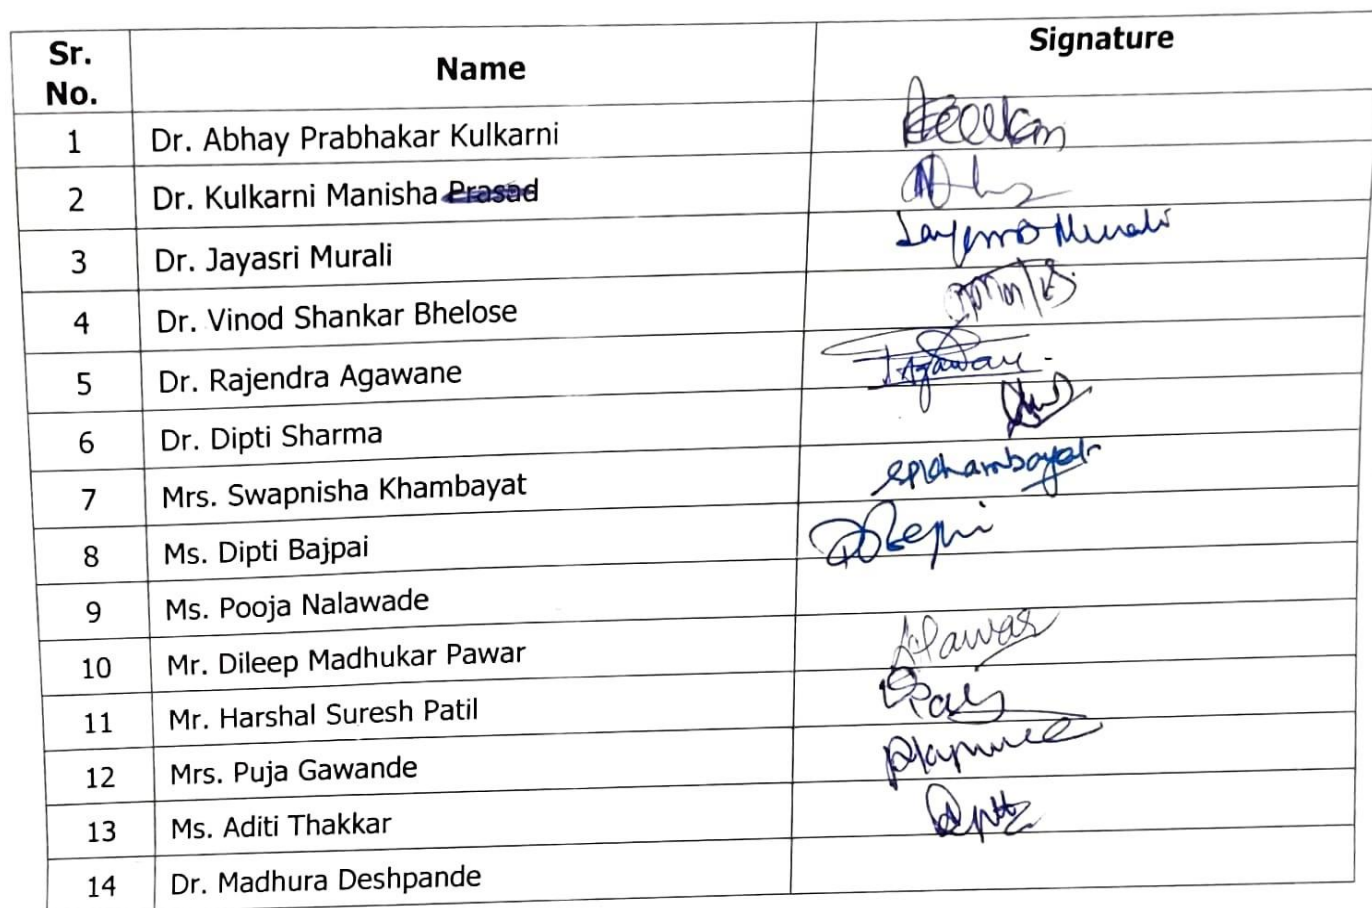 Sr. No. Name Signature
1 Dr. Abhay Prabhakar Kulkarni
2 Dr. Kulkarni Manisha Prasad
3 Dr. Jayasri Murali Jayasri Murali
4 Dr. Vinod Shankar Bhelose
5 Dr. Rajendra Agawane
6 Dr. Dipti Sharma
7 Mrs. Swapnisha Khambayat spkhambayat
8 Ms. Dipti Bajpai
9 Ms. Pooja Nalawade
10 Mr. Dileep Madhukar Pawar
11 Mr. Harshal Suresh Patil
12 Mrs. Puja Gawande
13 Ms. Aditi Thakkar
14 Dr. Madhura Deshpande